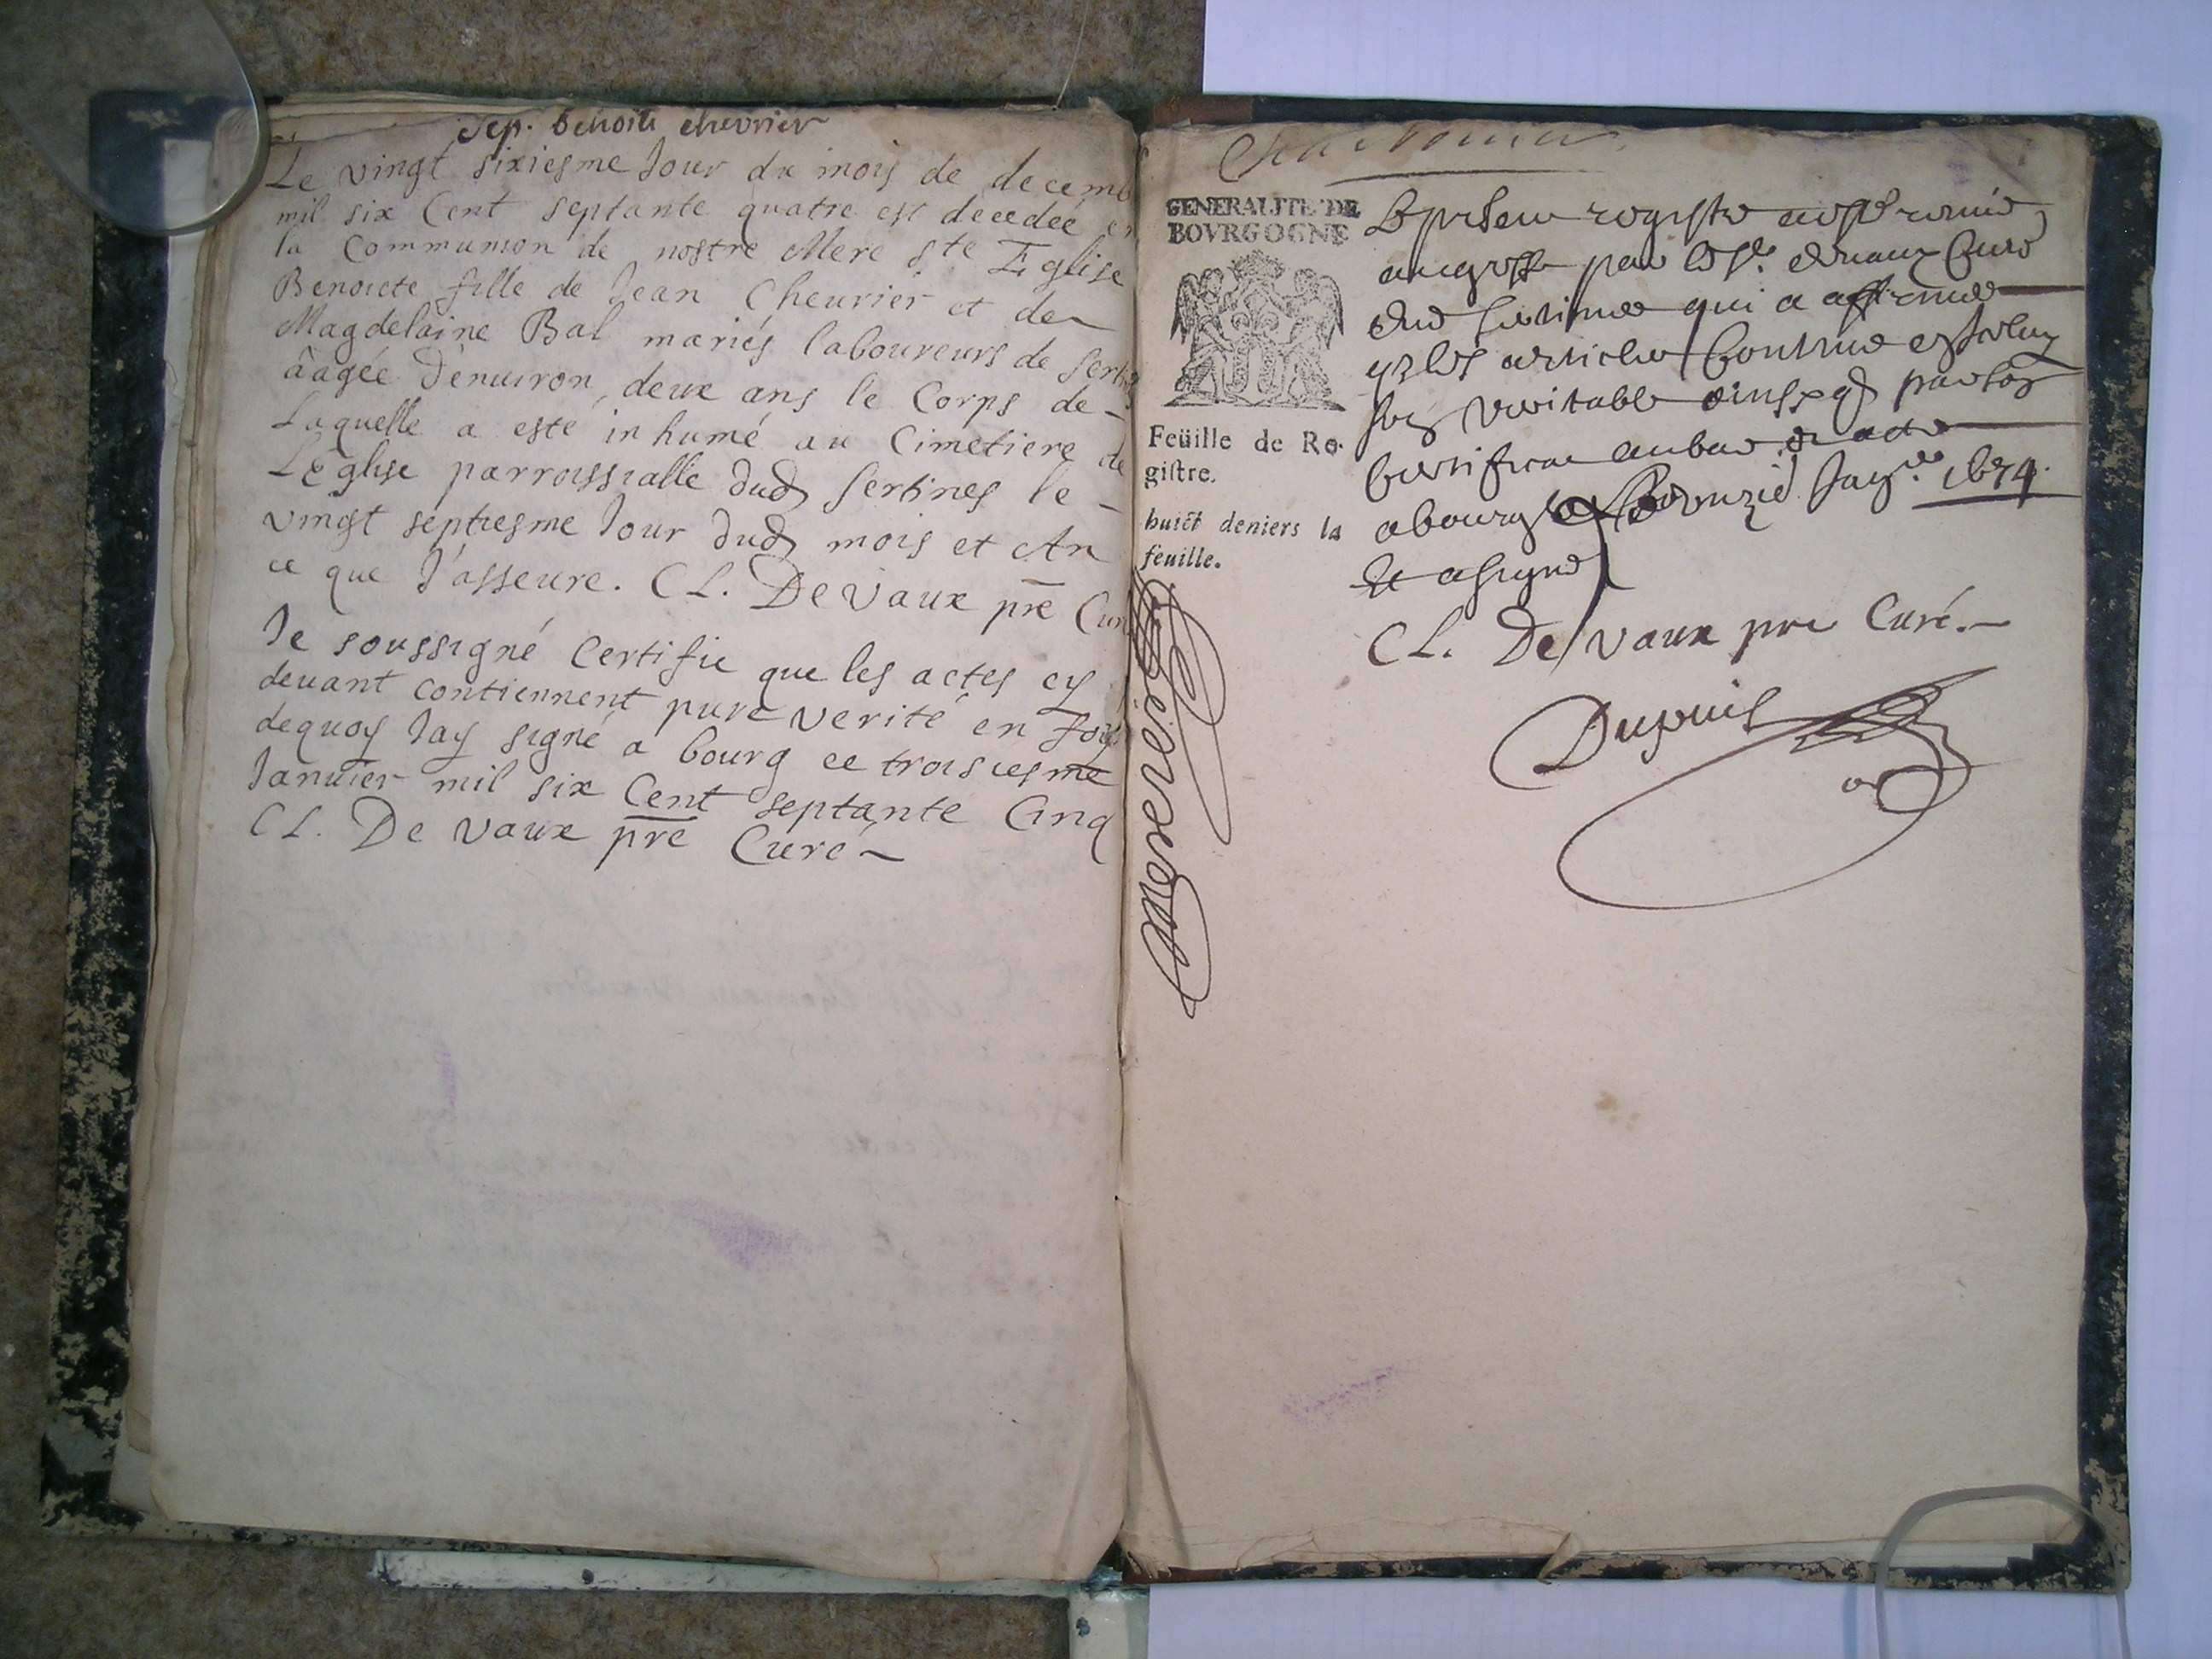 Sep. benoite chevrier
Le vingt sixiesme Jour du mois de decemb
mil six Cent septante quatre est decedeé en
la Communion de nostre Mere ste Eglise
Benoicte fille de Jean Cheurier et de
Magdelaine Bal mariés laboureurs de Serti
âagée D'enuiron deux ans le Corps de
Laquelle a esté inhumé au Cimetiere de
L'Eglise parroissialle dud Sertines le
vingt septiesme Jour dud mois et An
ce que J'asseure. CL. De Vaux pre Cur
Je soussigné Certifie que les actes cy
deuant contiennent pure verité en foy
dequoy Jay signé a bourg ce troisiesme
Januier mil six Cent septante Cinq
CL. De Vaux pre Curé
GENERALITE DE
BOVRGOGNE
Feüille de Re-
gistre.
huict deniers la
feuille.
Le present registre a esté remis
au greffe par led Sr. devaux Curé
dud Sertines qui a affirmé
les articles Contenus
veritable par son
Certificat
a bourg Janv. 1674.
Et a signé
CL. De Vaux pre Curé.
Dupuis